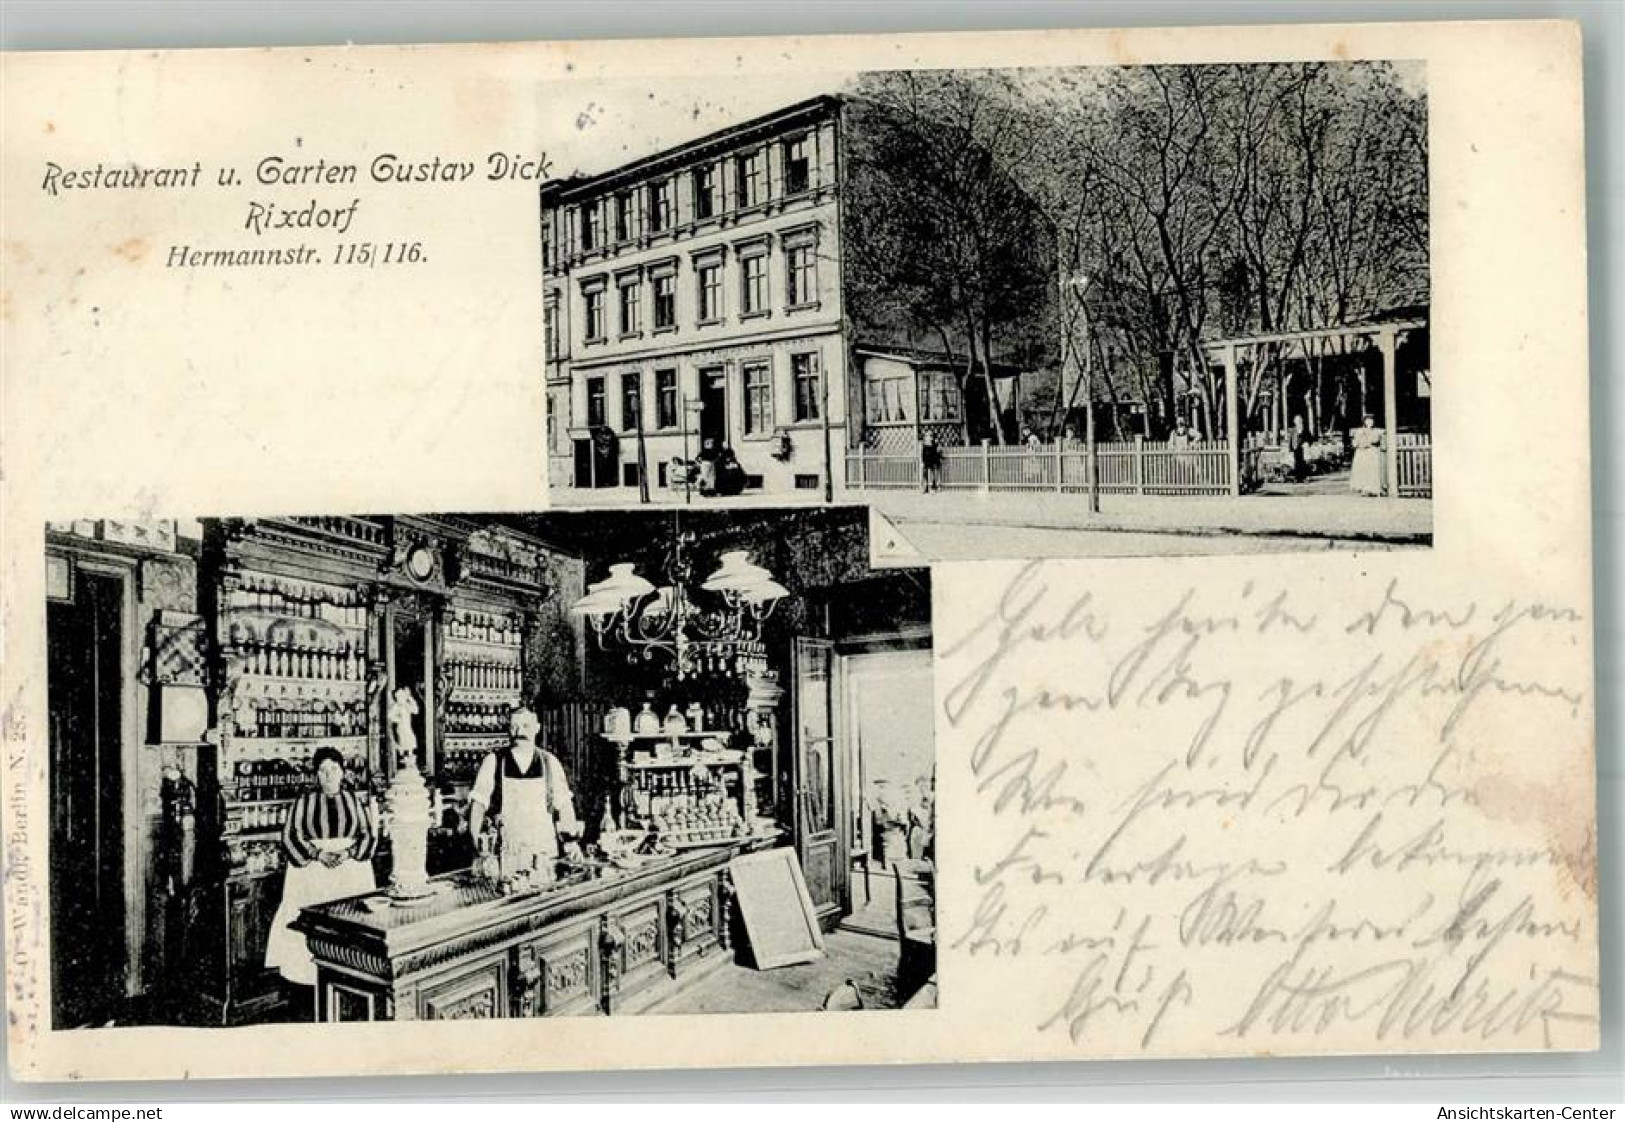 Restaurant u. Garten Gustav Dick
Rixdorf
Hermannstr. 115/116.
O. Wandt, Berlin N. 28.
Habe heute den gan
zen Tag geschlafen,
Wie sind dir die
Feiertage bekommen
Bis auf Weiteres besten
Gruß Otto Moritz
www.delcampe.net
Ansichtskarten-Center